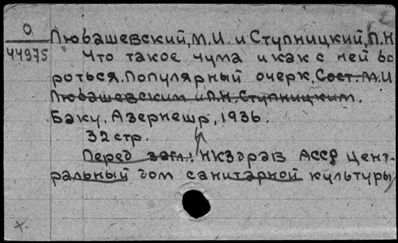 О
44975
Любашевский, М.И. и Ступницкий, П.Н.
Что такое чума и как с ней бо
роться. Популярный очерк. Сост. М.И
Любашевским и П.Н. Ступницким.
Баку, Азернешр, 1936.
32 стр.
Перед загл.: НКЗдрав АССР Цент-
ральный дом санитарной культуры